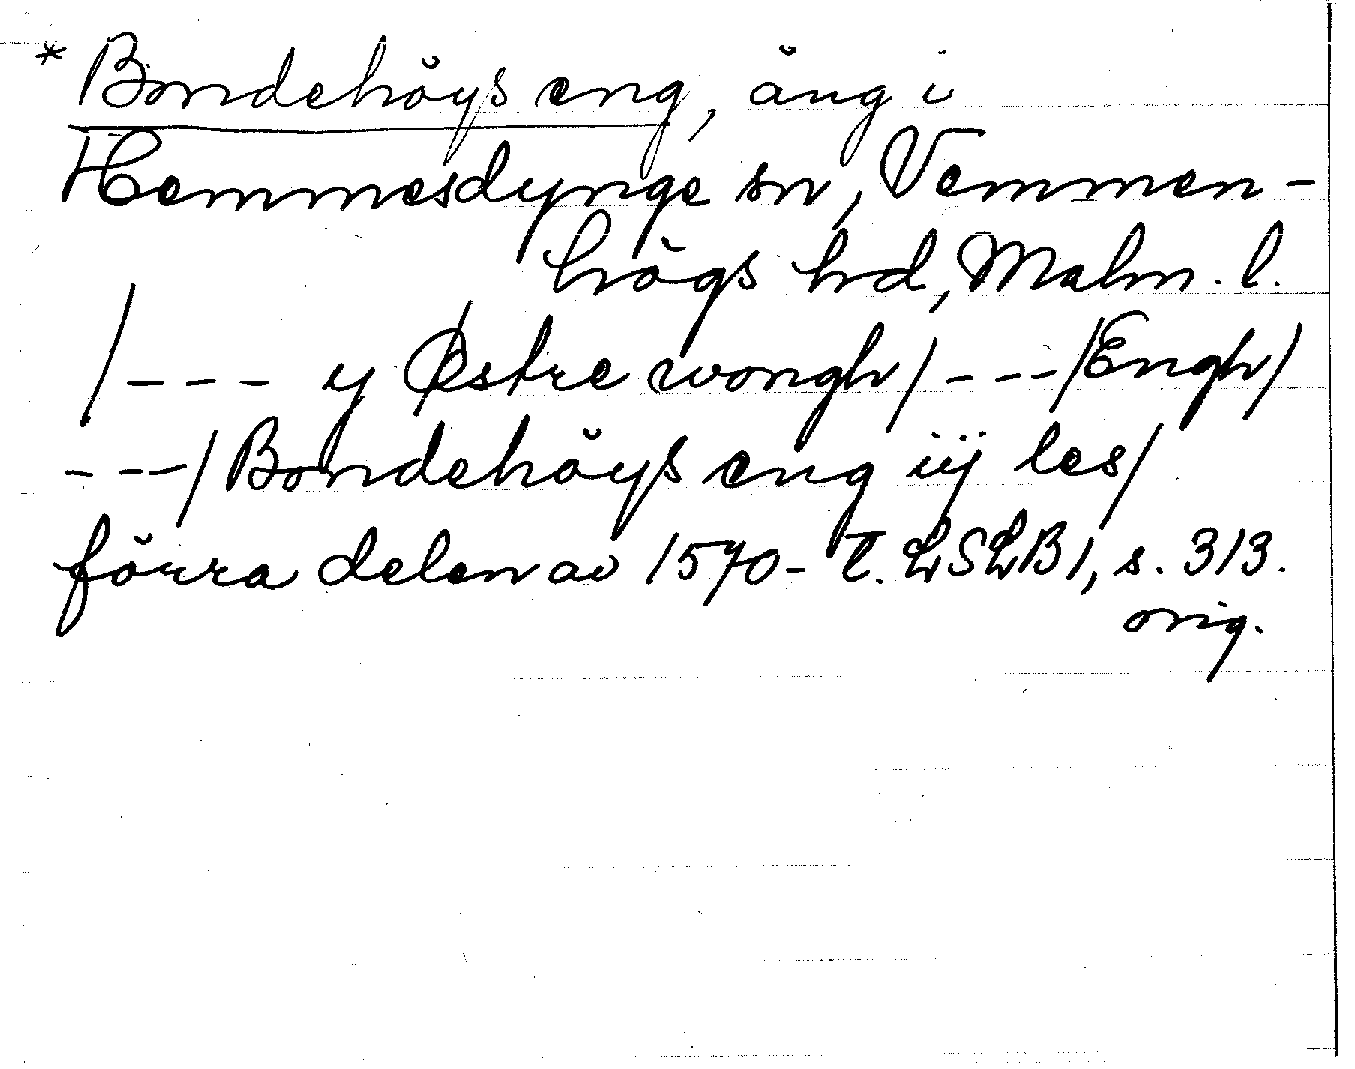 * Bondehöys eng, äng i
Hemmesdynge sn, Vemmen-
högs hd, Malm. l.
/--- y Østre wongh/ ---/Engh/
---/Bondehöys eng iij les/
förra delen av 1570-t. LSLB1, s. 313.
orig.